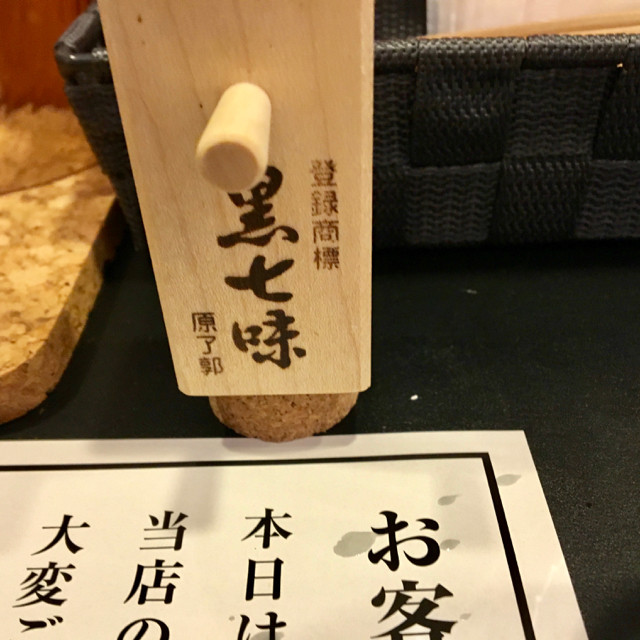 登録商標
黒七味
原了郭
お客
本日は
当店の
大変ご